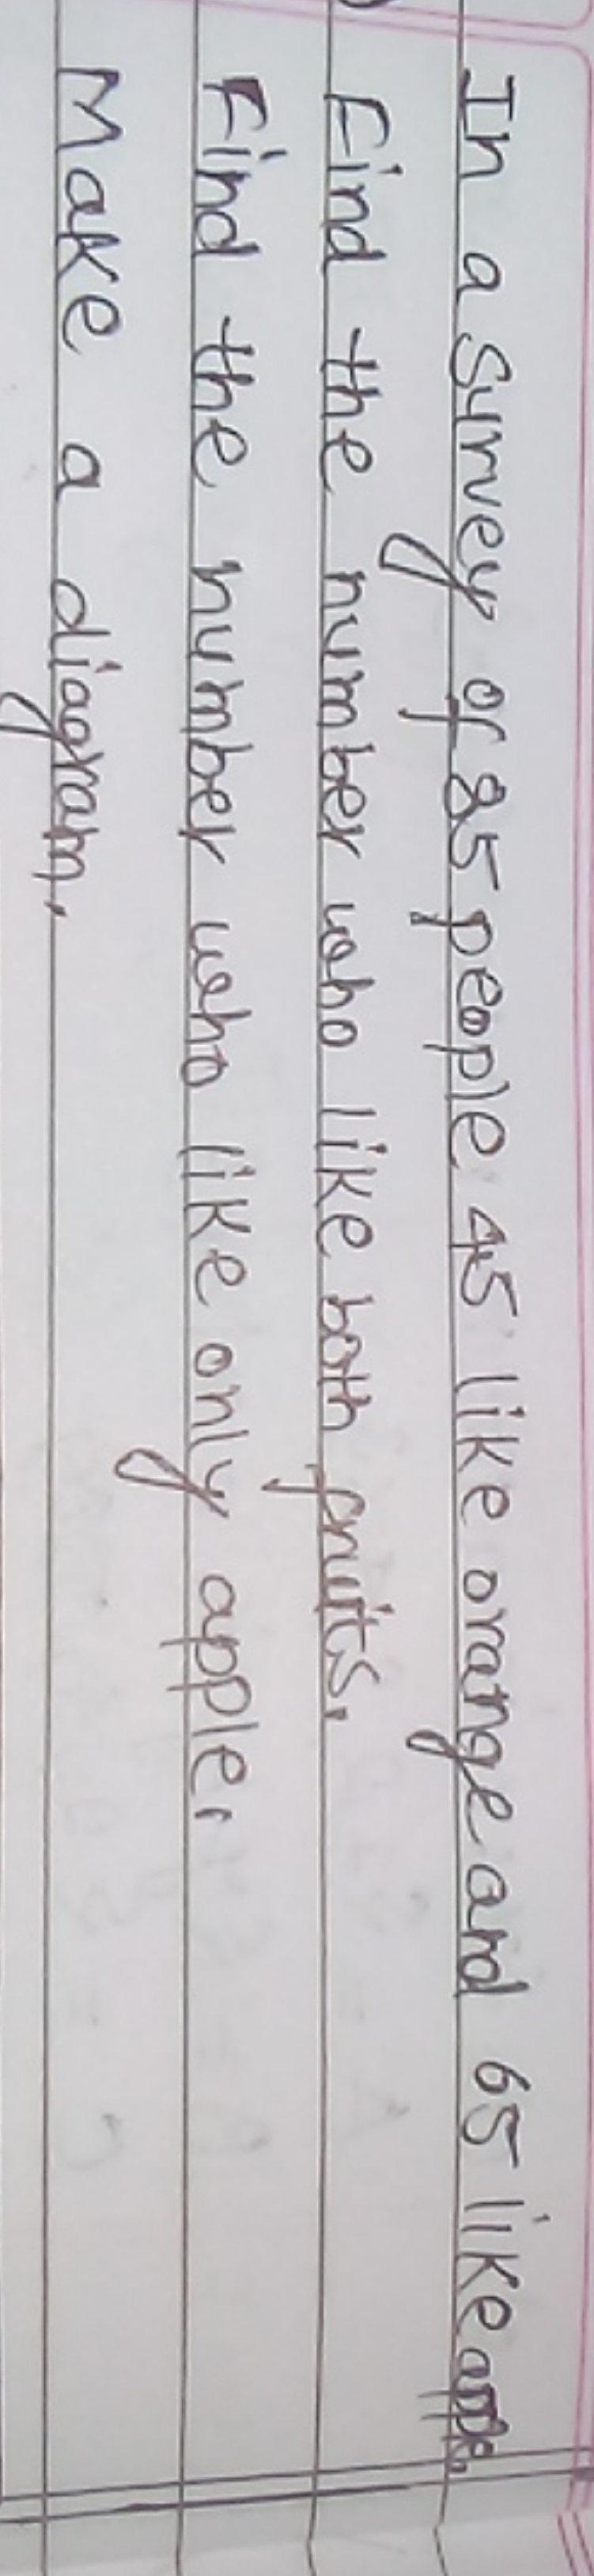 In a survey of 85 people 45 like orange and 65 like apple.
Find the number who like both fruits.
Find the number who like only apple.
Make a diagram.